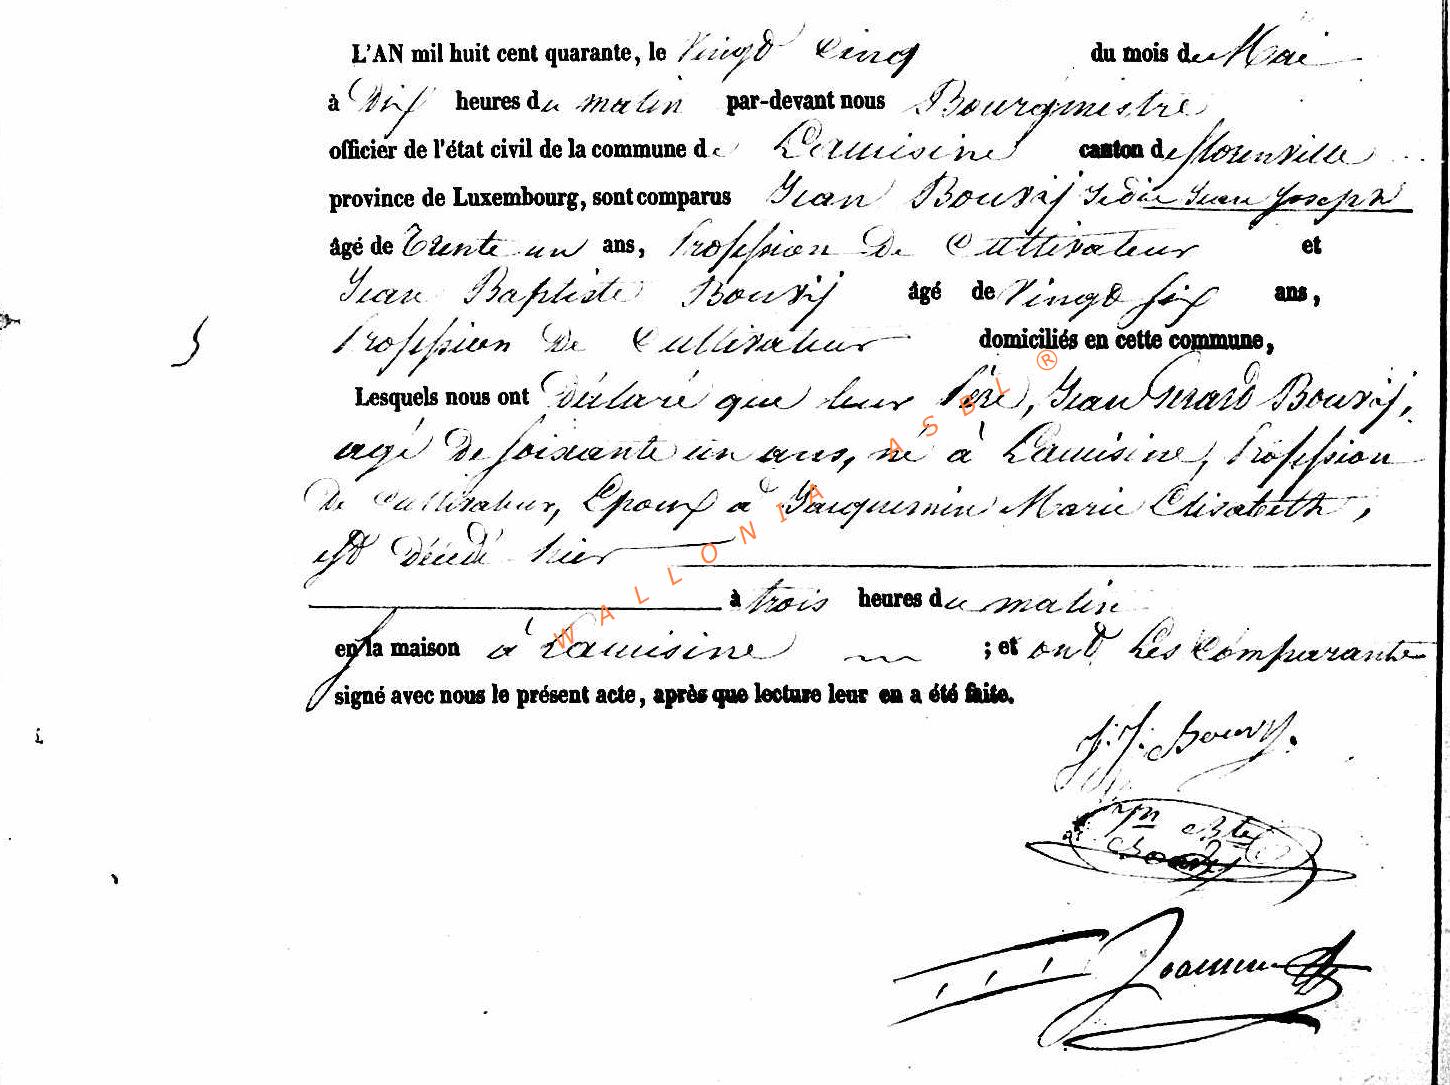 L'AN mil huit cent quarante, le Vingt Cinq du mois de Mai
à Dix heures du matin par-devant nous Bourgmestre
officier de l'état civil de la commune de Lacuisine canton de florenville
province de Luxembourg, sont comparus Jean Bouvij Jedit Jean Joseph
âgé de Trente un ans, Profession De Cultivateur et
Jean Baptiste Bouvij âgé de Vingt Six ans,
Profession De Cultivateur domiciliés en cette commune,
Lesquels nous ont Déclaré que leur Père, Jean Gerard Bouvij,
agé De Soixante un ans, né à Lacuisine, Profession
De Cultivateur, Epoux a Jacquemin Marie Elisabeth,
est Décédé hier
à trois heures du matin
en la maison à Lacuisine ; et ont Les Comparants
signé avec nous le présent acte, après que lecture leur en a été faite.
J. J. Bouvy.
Jn Bte
Bouvy
WALLONIA ASBL ®